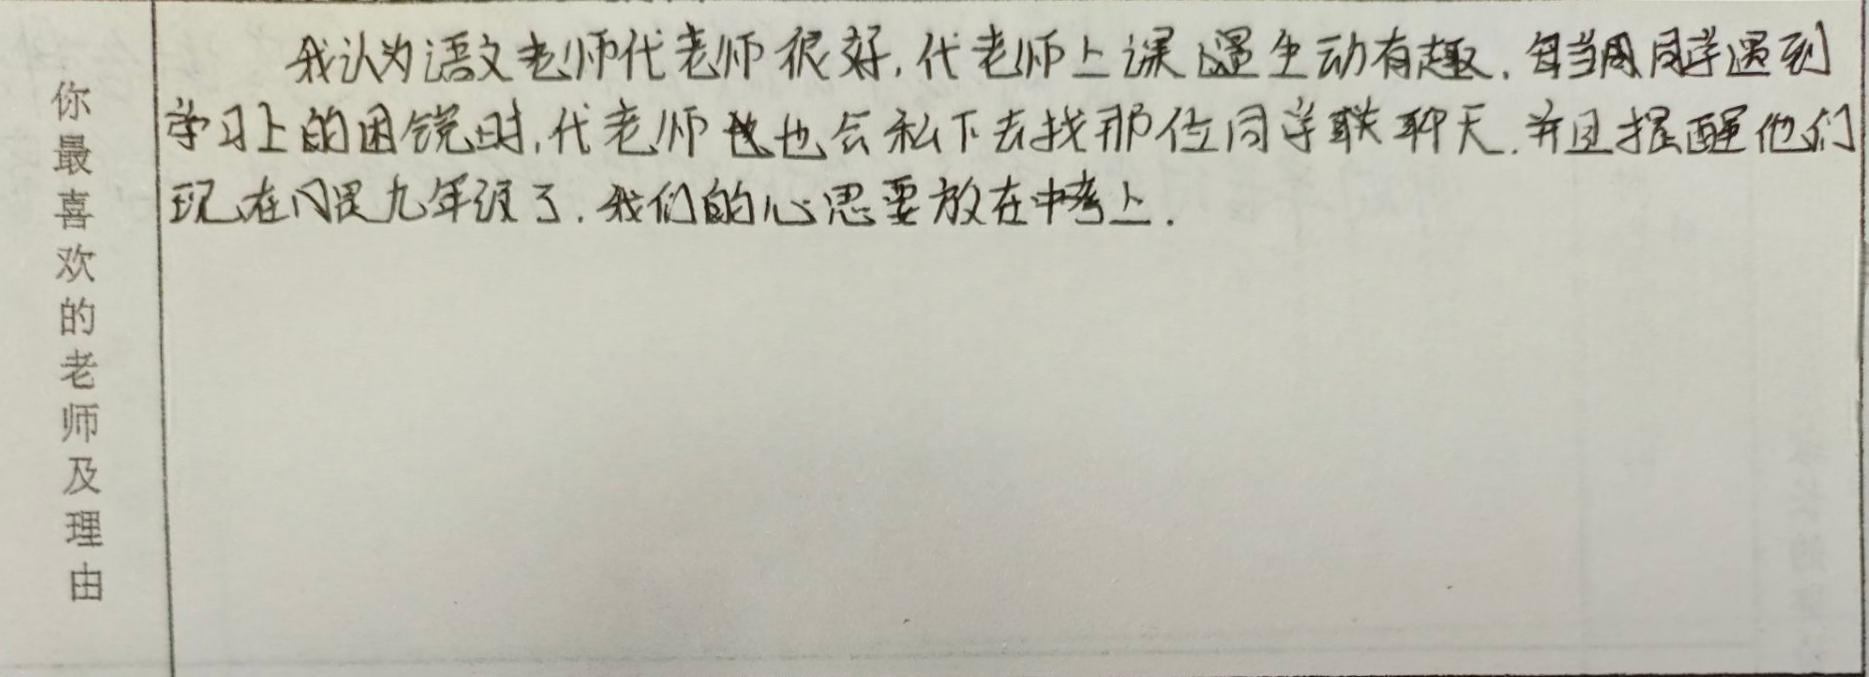 你最喜欢的老师及理由
我认为语文老师代老师很好,代老师上课生动有趣.每当同学遇到
学习上的困镜时,代老师也会私下去找那位同学聊天.并且提醒他们
现在已是九年级了.我们的心思要放在中考上.